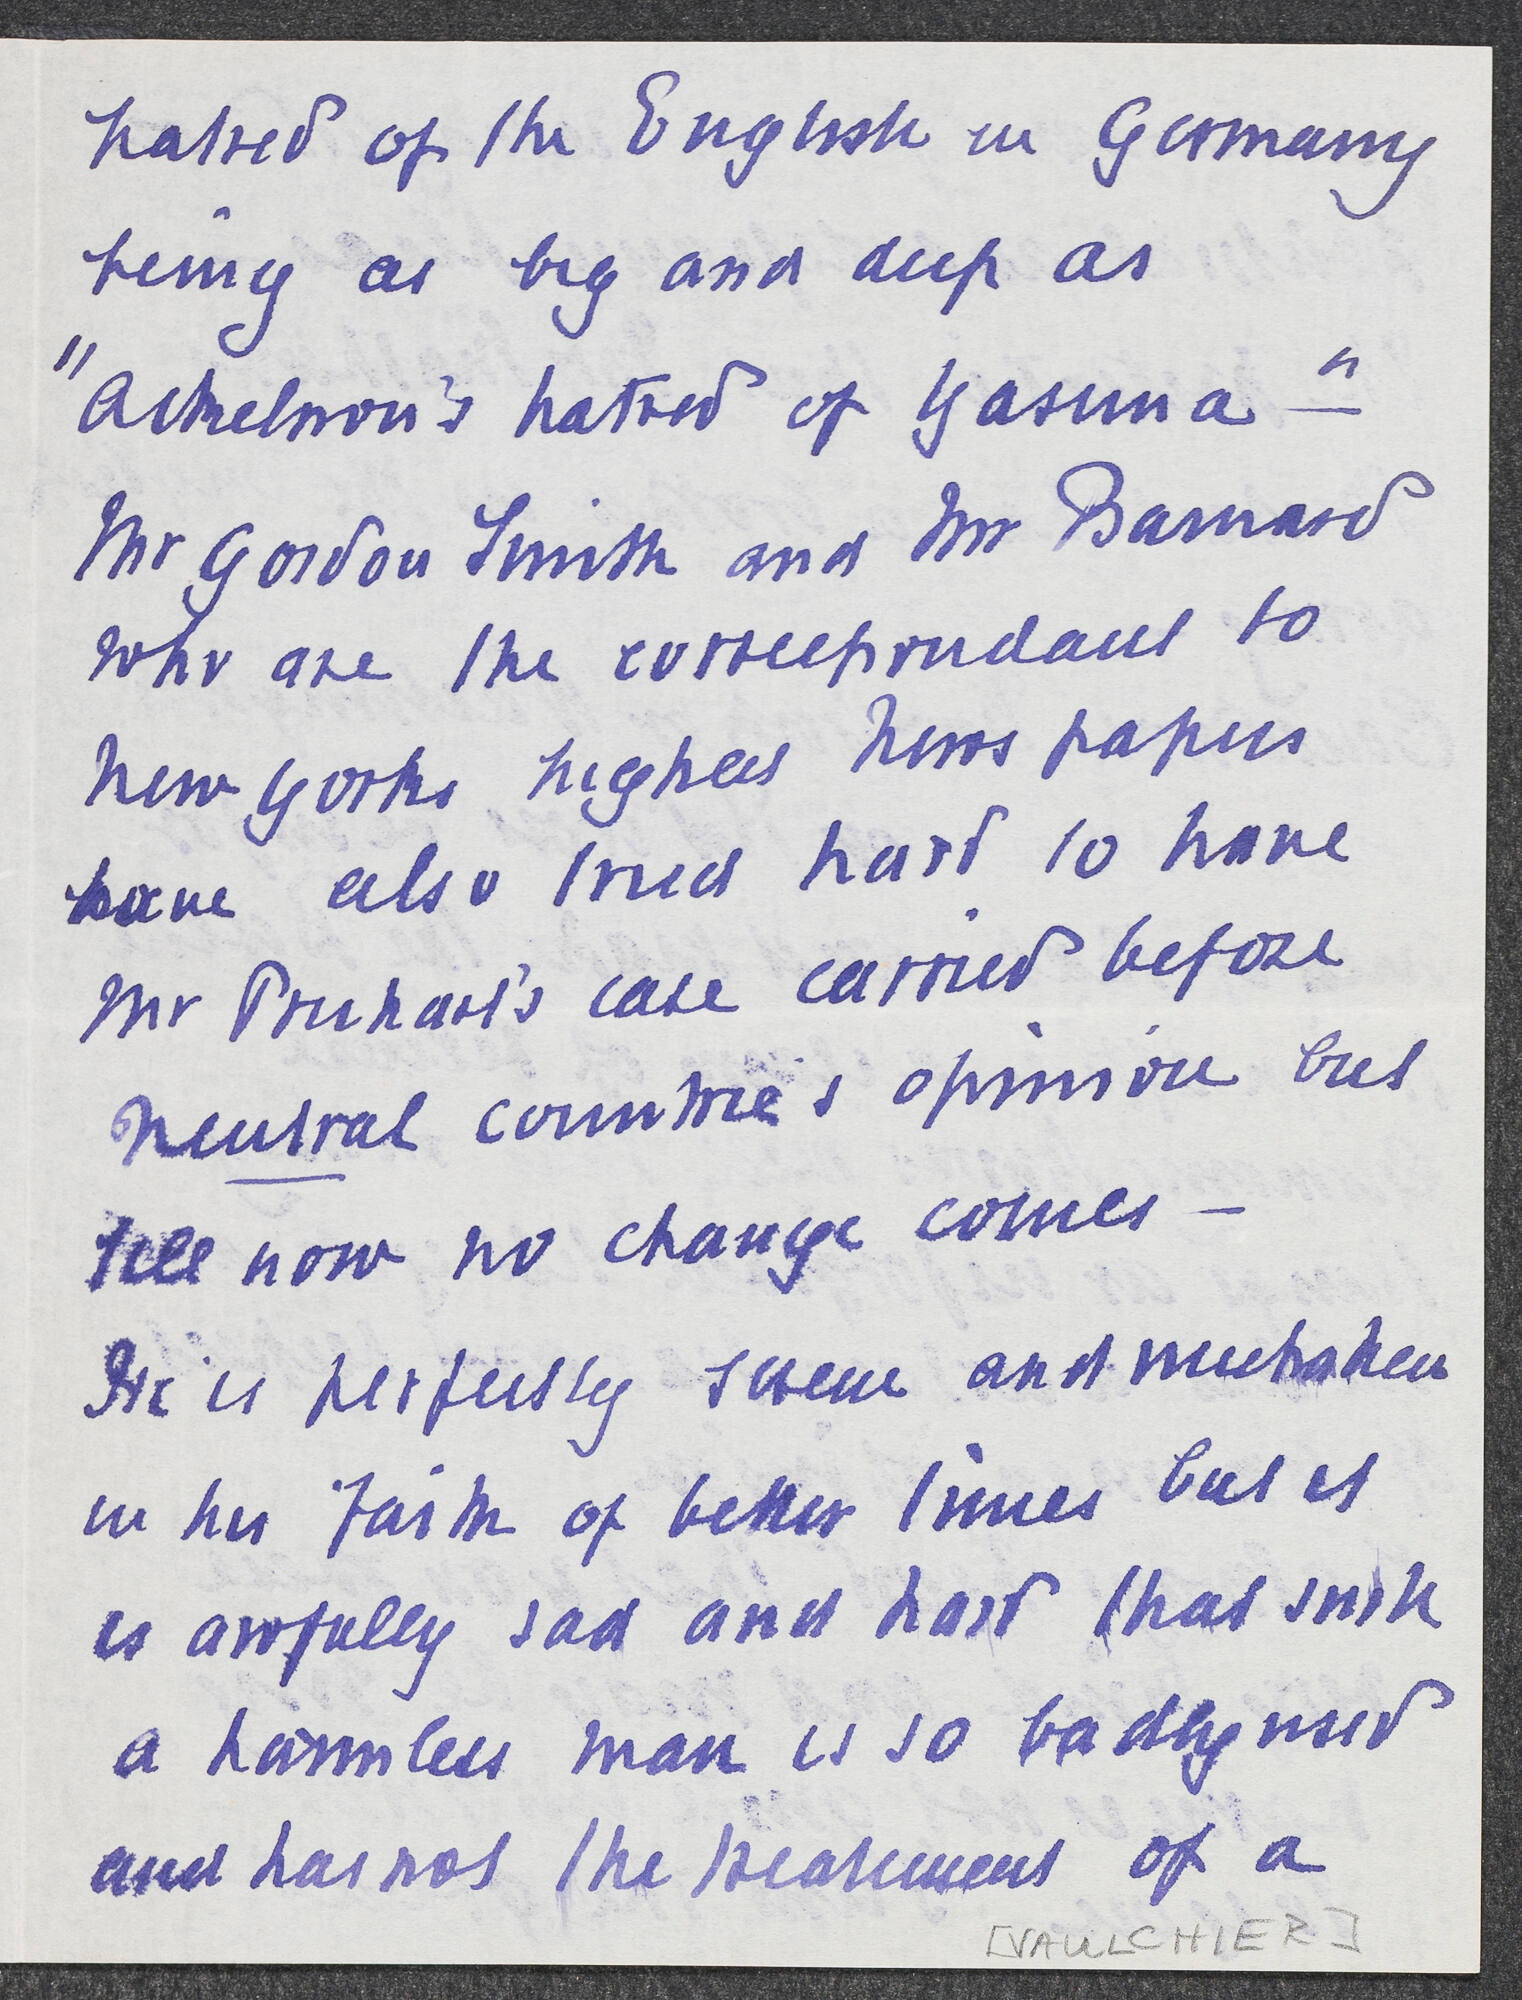 hatred of the English in Germany
being as big and deep as
"Achelnon's hatred of Yasuna"—
Mr Gordon Smith and Mr Barnard
who are the correspondant to
New Yorks highest News papers
have also tried hard to have
Mr Pruhart's case carried before
Neutral countrie's opinion but
till now no change comes —
He is perfectly serene and
in his faith of better times but it
is awfully sad and hard that such
a harmless man is so badly used
and has not the treatment of a
[VAULCHIER]